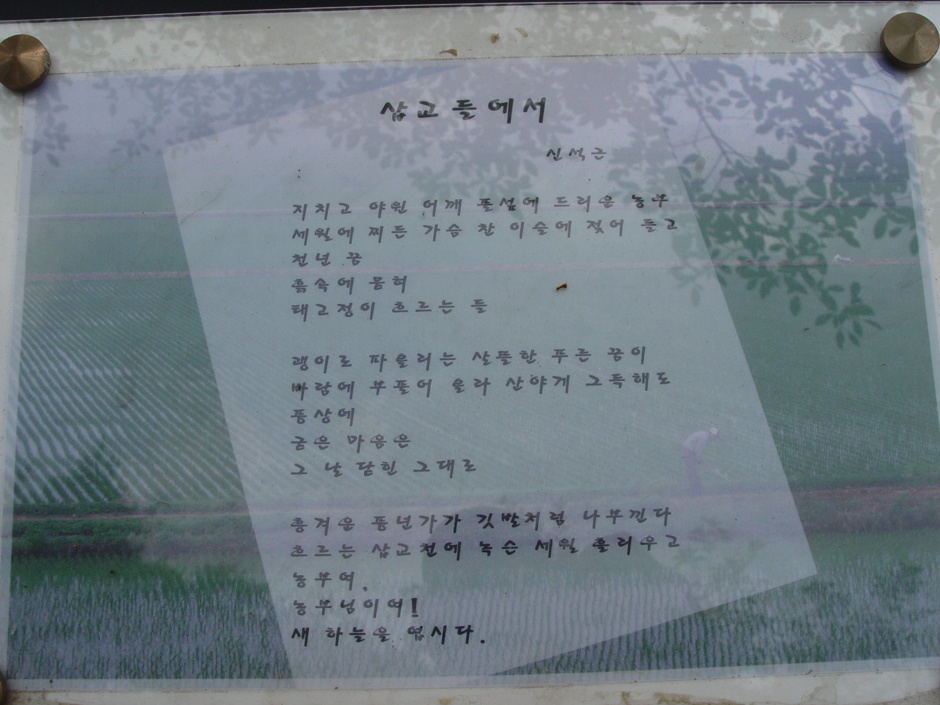 삽교들에서
신석근
지치고 야윈 어깨 풀섬에 드리운 농부
세월에 찌든 가슴 찬 이슬에 젖어 들고
천년 꿈
흙속에 묻혀
태고정이 흐르는 들
괭이로 파올리는 살뜰한 푸른 꿈이
바람에 부풀어 올라 산야게 그득해도
풍상에
굶은 마음은
그 날 닫힌 그대로
흥겨운 풍년가가 깃발처럼 나부낀다
흐르는 삽교천에 녹슨 세월 흘리우고
농부여.
농부님이여!
새 하늘을 엽시다.